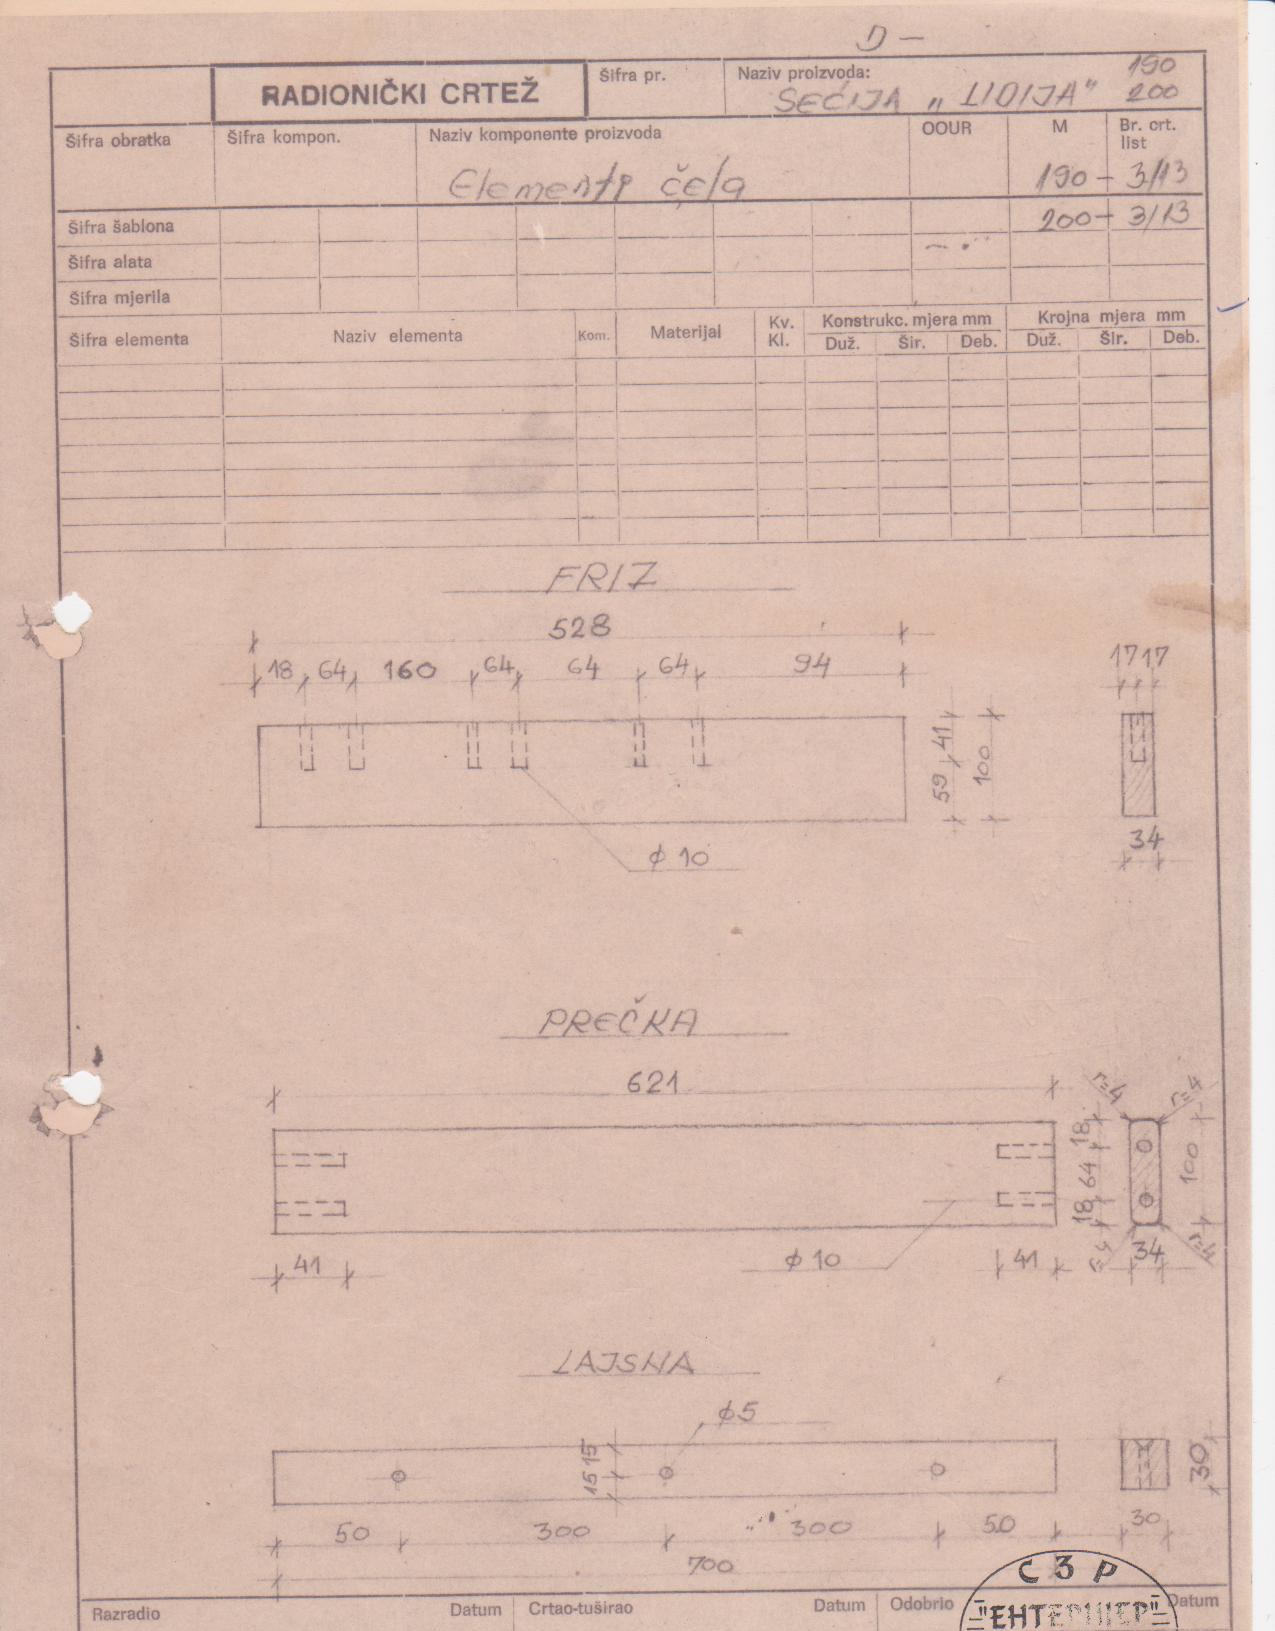 D –
RADIONIČKI CRTEŽ
Šifra pr.
Naziv proizvoda: 190
SEĆIJA „LIDIJA" 200
Šifra obratka
Šifra kompon.
Naziv komponente proizvoda
OOUR
M
Br. crt.
list
Elementi čela
190 – 3/13
200 – 3/13
Šifra šablona
Šifra alata
Šifra mjerila
Šifra elementa
Naziv elementa
Kom.
Materijal
Kv.
Kl.
Konstrukc. mjera mm
Duž. Šir. Deb.
Krojna mjera mm
Duž. Šir. Deb.
FRIZ
528
18 64 160 64 64 64 94
59 41
100
17 17
34
φ 10
PREČKA
621
r=4 r=4
18 64 18
100
41
φ 10
41
r=4 34 r=4
LAJSNA
φ5
15 15
30
50 300 300 50 30
700
Razradio
Datum
Crtao-tuširao
Datum
Odobrio
Datum
СЗР
"ЕНТЕРИЈЕР"